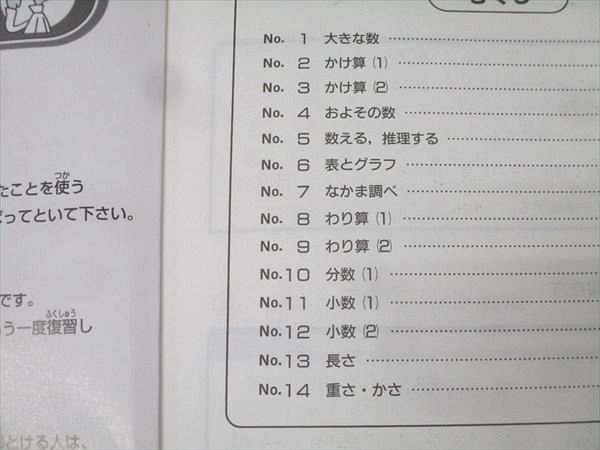 たことを使う
つか
ばってといて下さい。
です。
う一度復習し
ふくしゅう
とける人は、
もくじ
No. 1 大きな数
No. 2 かけ算 (1)
No. 3 かけ算 (2)
No. 4 およその数
No. 5 数える，推理する
No. 6 表とグラフ
No. 7 なかま調べ
No. 8 わり算 (1)
No. 9 わり算 (2)
No.10 分数 (1)
No.11 小数 (1)
No.12 小数 (2)
No.13 長さ
No.14 重さ・かさ